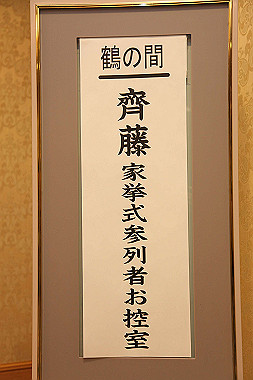 鶴の間
齊藤家挙式参列者お控室